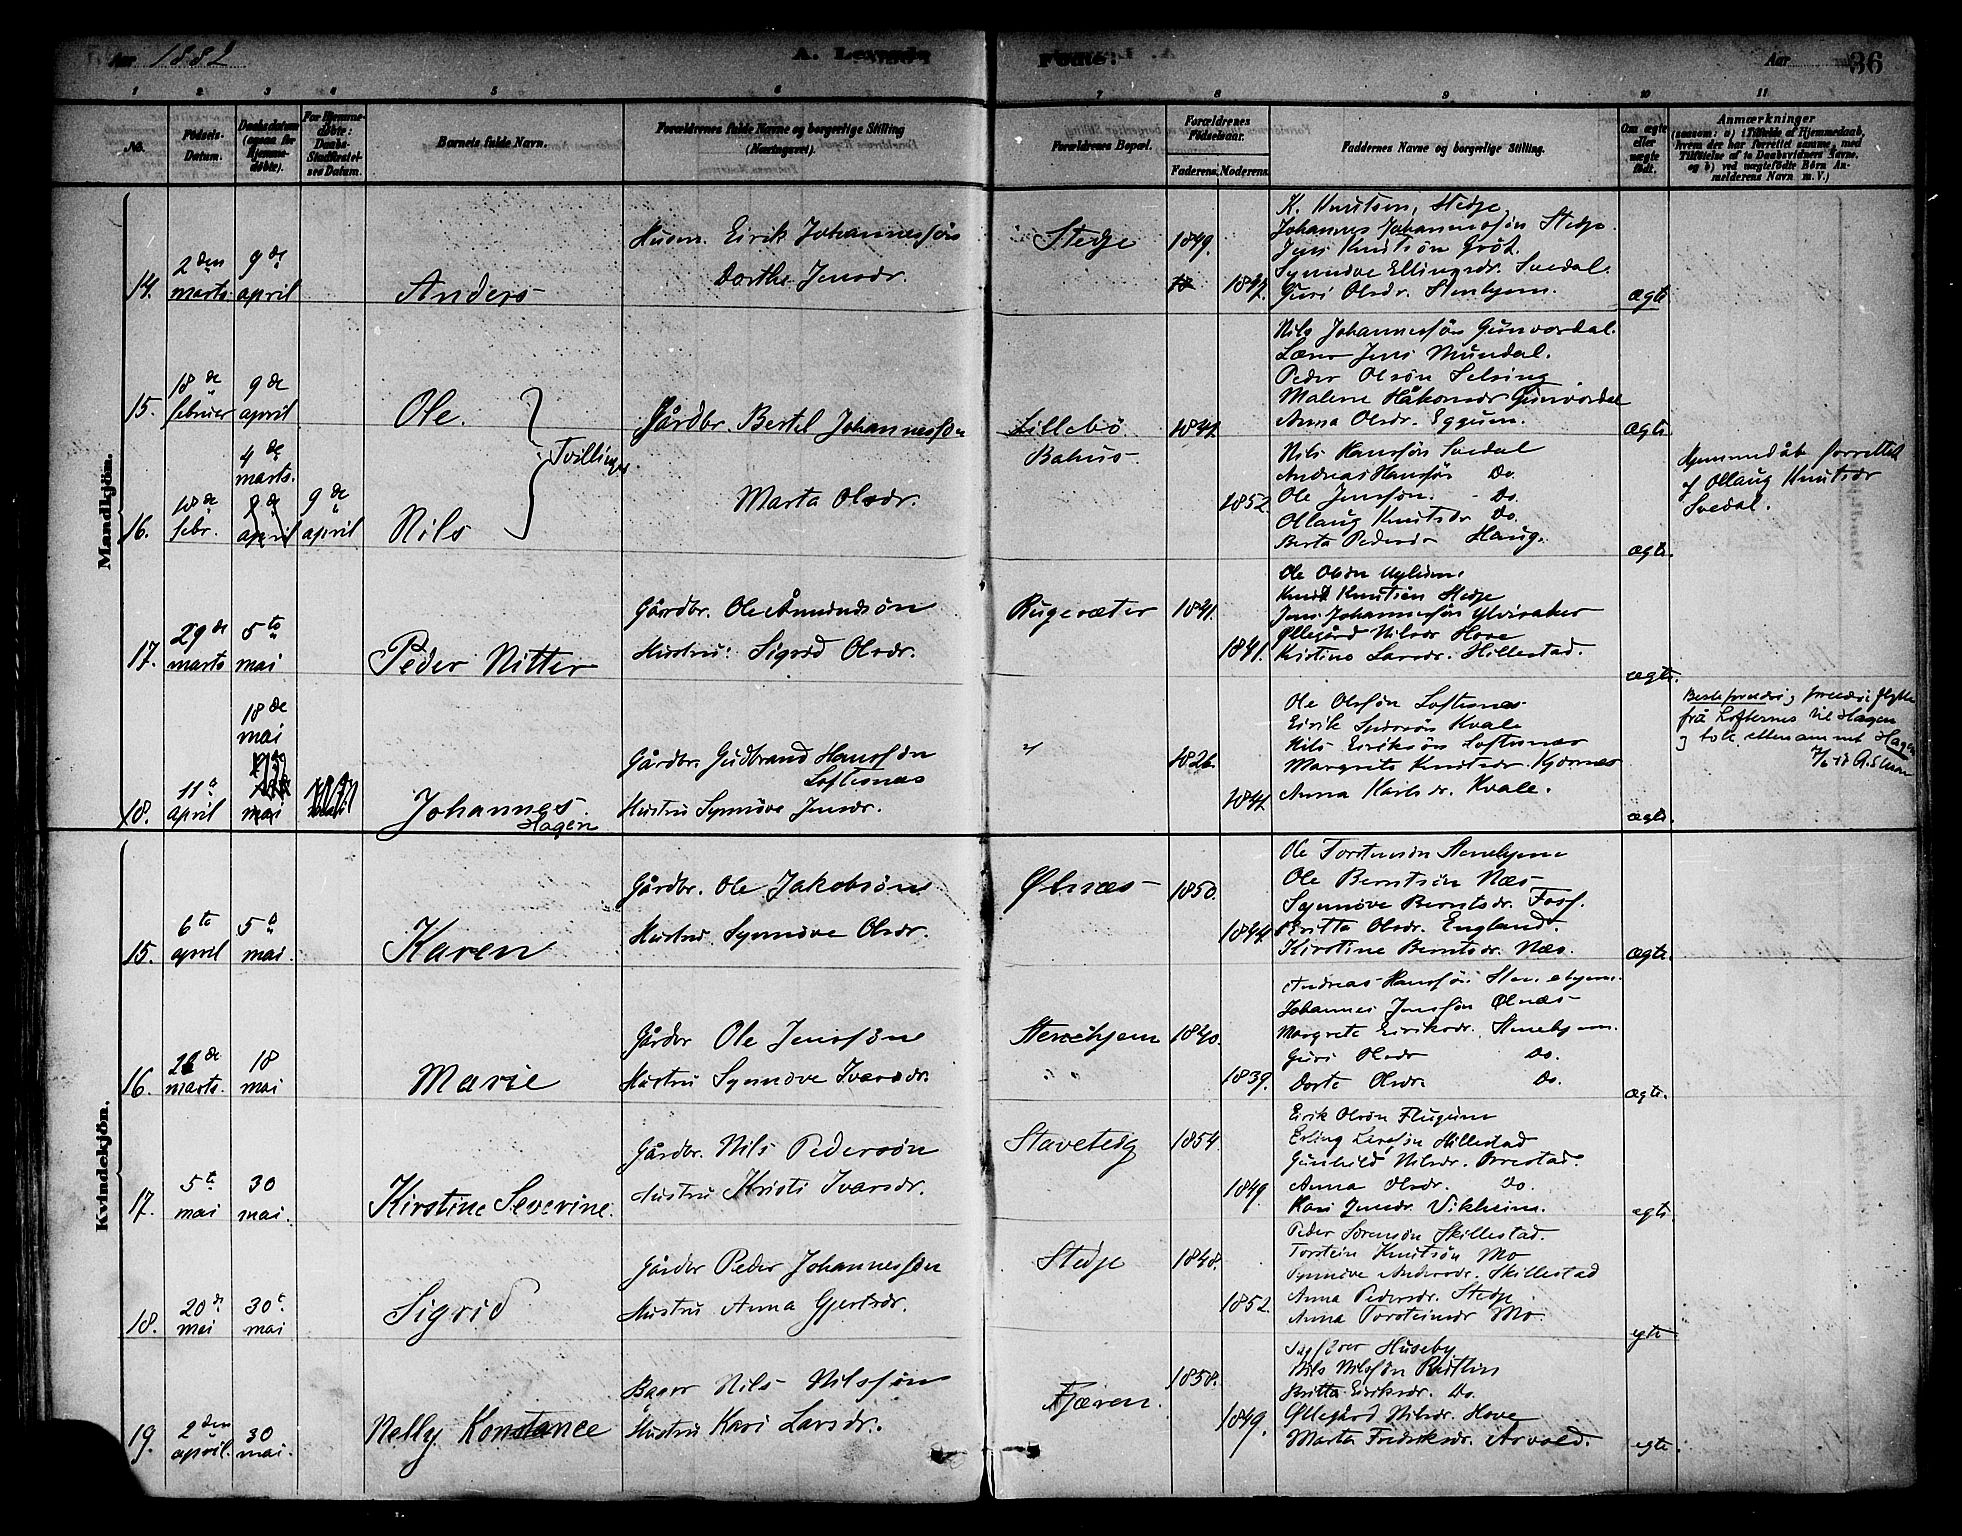 Aar 1882
A. Levende
Fødte:
Aar
36
1 2 3 4 5 6 7 8 9 10 11
No.
Fødsels-
Datum.
Daabsdatum
(ogsaa for
Hjemme-
døbte).
For Hjemme-
døbte:
Daabs-
Stadfæstel-
ses Datum.
Barnets fulde Navn.
Forældrenes fulde Navne og borgerlige Stilling
(Næringsvei).
Forældrenes Bopæl.
Forældrenes
Fødselsaar.
Faderens. Moderens.
Faddernes Navne og borgerlige Stilling.
Om ægte
eller
uægte
født.
Anmærkninger
(saasom: a) i Tilfælde af Hjemmedaab,
hvem der har forrettet samme, med
Tilføielse af to Daabsvidners Navne,
og b) ved uægtefødte Børn An-
melderens Navn m. V.)
Mandkjön.
14.
2den
marts
9de
april
Anders
Husm. Eirik Johannessön
Dorthe Jensdr.
Stedje
1849.
1847.
K. Knutsen, Stedje
Johannes Johannessön Stedje
Jens Knutsön Gröt.
Synnöve Ellingsdr. Svedal.
Guri Olsdr. Stenhjem.
ægte
15.
18de
februer
9de
april
Ole.
Tvillinger.
Gårdbr. Bertel Johannessön
Lillebö
1847.
Nils Johannessön Gunvordal.
Jens Mundal.
Peder Olsön Selseng
Malene Håkonsdr Gunvordal
Anna Olsdr. Eggum.
ægte
16.
18de
febr.
4de
marts.
april
9de
april
Nils
Marta Olsdr.
Bahus
1852.
Nils Hanssön Svedal
Andreas Hanssön Do.
Ole Jenssön. Do.
Ollaug Knutsdr Do.
Berta Pedersdr Haug.
ægte.
Hjemmedåb forrettet
af Ollaug Knutsdr
Svedal.
17.
29de
marts
5te
mai
Peder Nitter
Gårdbr. Ole Åmundsön
Hustru: Sigrid Olsdr.
Rugesæter
1841.
1841.
Ole Olsön Nylum
Knud Knutsen Stedje
Jens Johannessön Ylvisaker
Øllegård Nilsdr Hove
Kistine Larsdr. Hillestad.
ægte.
18.
11te
april
18de
mai
mai
Johannes
Hagen
Gårdbr. Gudbrand Hanssön
Loftesnæs
Hustru Synnöve Jensdr.
"
1826.
1847.
Ole Olssön Loftesnæs
Eirik Kvale
Nils Eiriksön Loftesnæs
Margrete Knutsdr. Kjørnes
Anna Karlsdr. Kvale.
ægte.
Besteforeldre og foreldre flytte
frå Loftesnes til Hagen
og tok etternamnet Hagen
Kvindekjön.
15.
6te
april
5te
mai.
Karen
Gårdbr. Ole Jakobsön
Hustru. Synnöve Olsdr.
Ølnæs
1850.
1844
Ole Torstensön Stenehjem
Ole Berntsön Næs
Synnöve Berntsdr. Foss.
Britta Olsdr. England.
Kirstine Berntsdr. Næs.
ægte.
16.
marts.
18
mai
Marie
Gårdbr Ole Jenssön
Hustru Synnöve Ivarsdr.
Stenehjem
" "
1840.
1839.
Andreas Hanssön Stenehjem.
Johannes Jenssön Ølnæs
Margrete Eiriksdr. Stenehjem.
Guri Olsdr Do.
Dorte Olsdr. Do.
ægte.
17.
5te
mai
30
mai.
Kirstine Severine.
Gårdbr. Nils Pedersön
Hustru Kristi Ivarsdr.
Staveteig
1854.
1849.
Eirik Olsön Flugum
Erling Hillestad
Gunhild Nilsdr. Brestad.
Anna Olsdr. Do.
Kari Jensdr. Vikheim.
ægte
18.
20de
mai
30te
mai
Sigrid
Gårdbr Peder Johannessön
Hustru Anna Gjertsdr.
Stedje
1848.
1852.
Peder Sörensön Skillestad.
Torstein Knutsön Mo
Synnöve Andersdr. Skillestad
Anna Pedersdr. Stedje
Anna Torsteinsdr Mo.
egte
19.
2den
april.
30
mai.
Nelly Konstance
Bager Nils Nilssön
Hustru Kari Larsdr.
Fjæren.
1858.
1849.
Sagförer Huseby
Nils Nilssön
Britta Eiriksdr. Do.
Øllegård Nilsdr. Hove
Marta Fredriksdr. Arvold.
egte